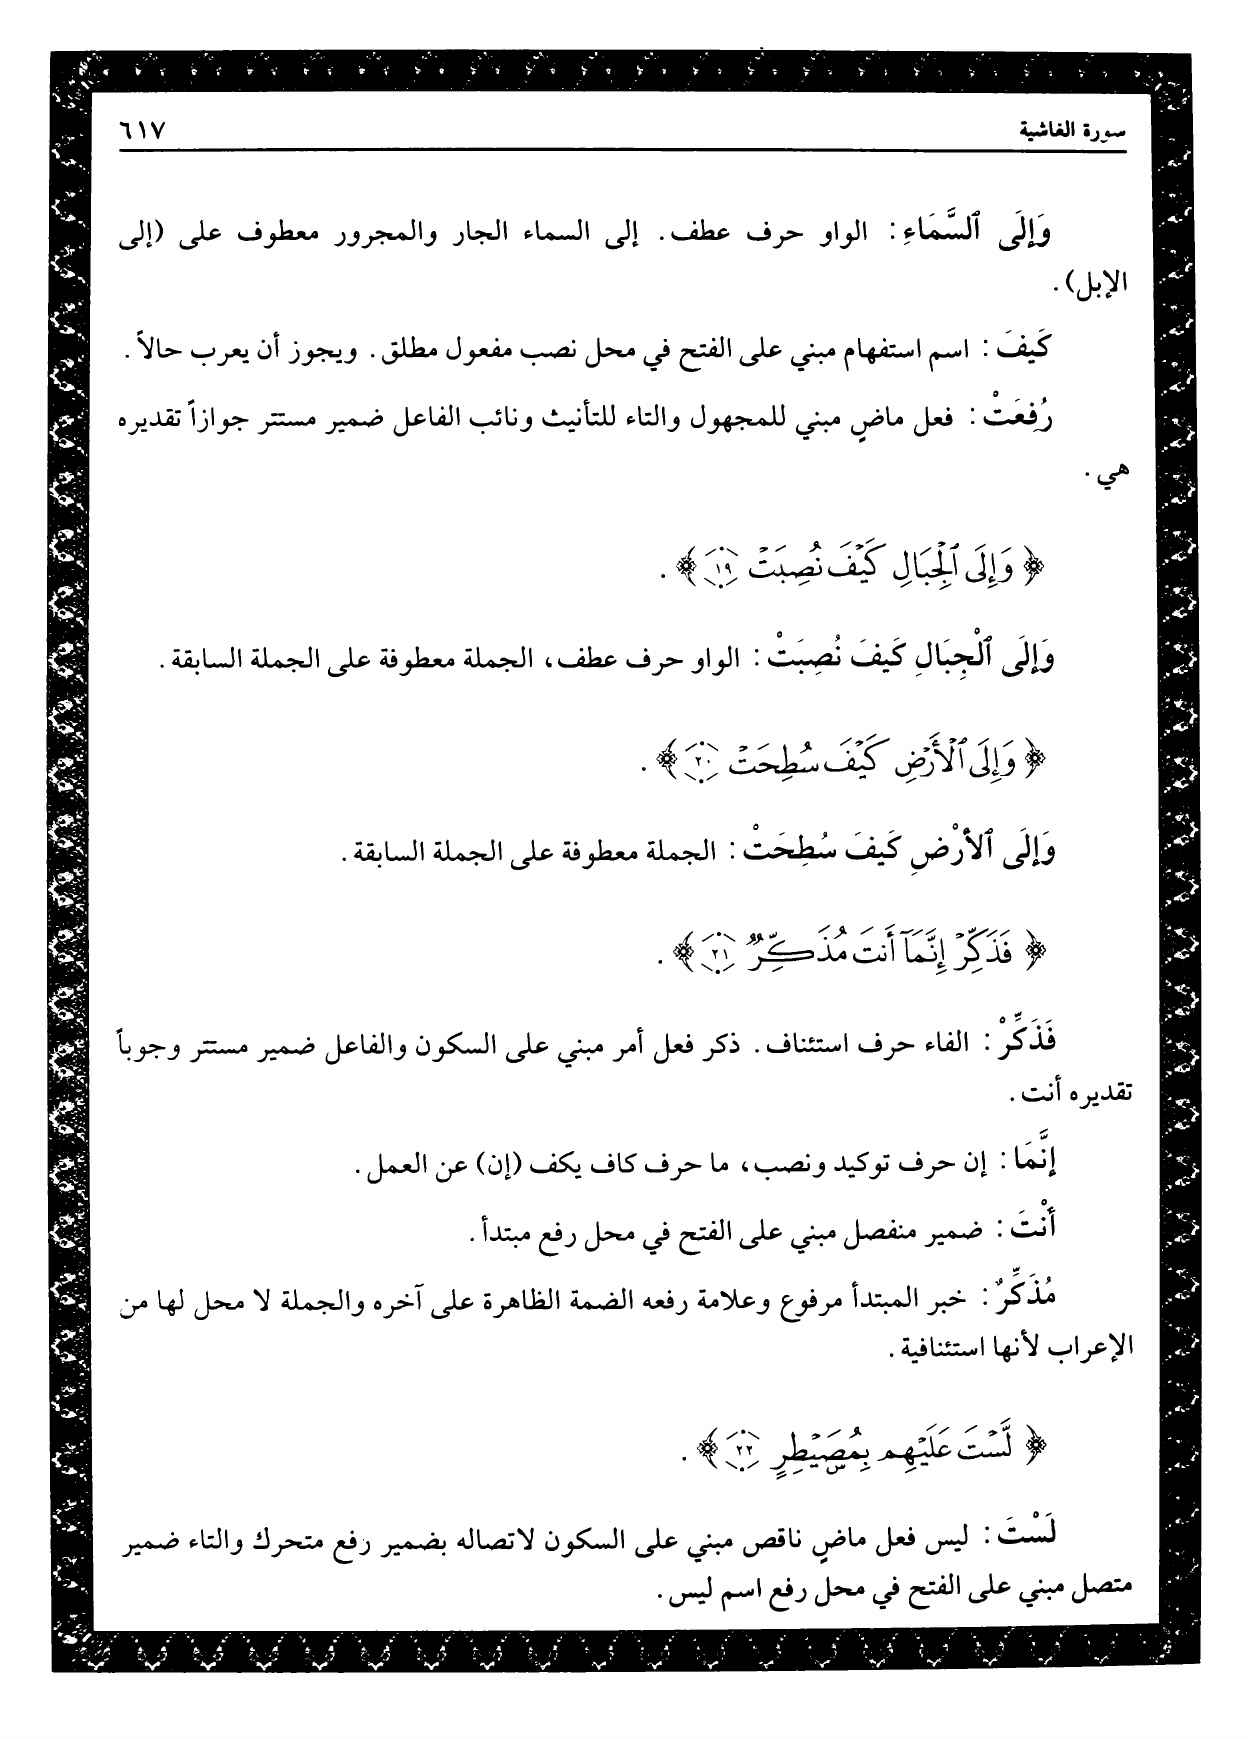 سورة الغاشية ٦١٧
وَإِلَى ٱلسَّمَاءِ: الواو حرف عطف. إلى السماء الجار والمجرور معطوف على (إلى
الإبل).
كَيفَ: اسم استفهام مبني على الفتح في محل نصب مفعول مطلق. ويجوز أن يعرب حالاً.
رُفِعَتْ: فعل ماضٍ مبني للمجهول والتاء للتأنيث ونائب الفاعل ضمير مستتر جوازاً تقديره
هي.
﴿ وَإِلَى ٱلْجِبَالِ كَيْفَ نُصِبَتْ ١٩ ﴾.
وَإِلَى ٱلْجِبَالِ كَيفَ نُصِبَتْ: الواو حرف عطف، الجملة معطوفة على الجملة السابقة.
﴿ وَإِلَى ٱلْأَرْضِ كَيْفَ سُطِحَتْ ٢٠ ﴾.
وَإِلَى ٱلأَرْضِ كَيفَ سُطِحَتْ: الجملة معطوفة على الجملة السابقة.
﴿ فَذَكِّرْ إِنَّمَآ أَنتَ مُذَكِّرٌ ٢١ ﴾.
فَذَكِّرْ: الفاء حرف استئناف. ذكر فعل أمر مبني على السكون والفاعل ضمير مستتر وجوباً
تقديره أنت.
إِنَّمَا: إن حرف توكيد ونصب، ما حرف كاف يكف (إن) عن العمل.
أَنْتَ: ضمير منفصل مبني على الفتح في محل رفع مبتدأ.
مُذَكِّرٌ: خبر المبتدأ مرفوع وعلامة رفعه الضمة الظاهرة على آخره والجملة لا محل لها من
الإعراب لأنها استئنافية.
﴿ لَّسْتَ عَلَيْهِم بِمُصَيْطِرٍ ٢٢ ﴾.
لَسْتَ: ليس فعل ماضٍ ناقص مبني على السكون لاتصاله بضمير رفع متحرك والتاء ضمير
متصل مبني على الفتح في محل رفع اسم ليس.